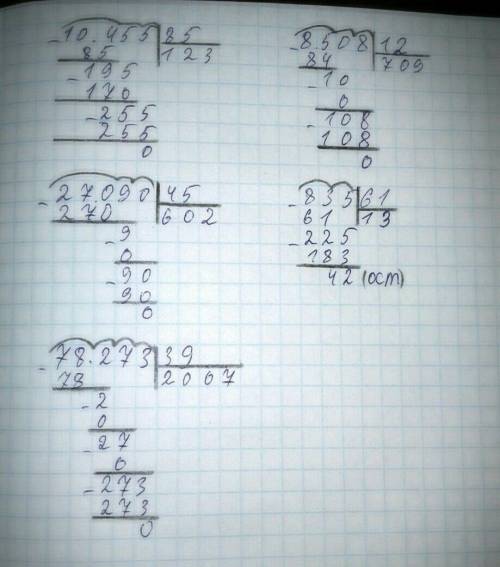 - 10.455 85
85 123
- 195
170
- 255
255
0
- 8.508 12
84 709
- 10
0
- 108
108
0
- 27.090 45
270 602
- 9
0
- 90
90
0
- 835 61
61 13
- 225
183
42 (ост)
- 78.273 39
78 2007
- 2
0
- 27
0
- 273
273
0